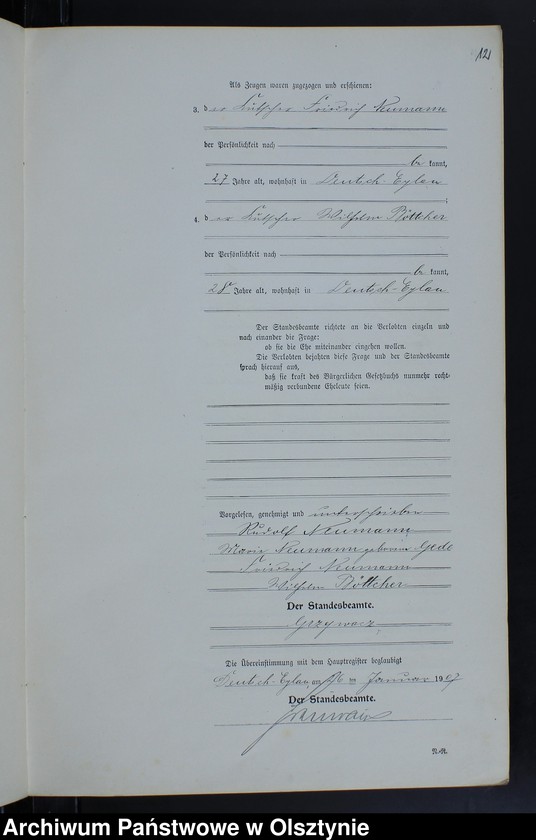 121
Als Zeugen waren zugezogen und erschienen:
3. der Kutscher Friedrich Neumann
der Persönlichkeit nach
bekannt,
27 Jahre alt, wohnhaft in Deutsch-Eylau
;
4. der Kutscher Wilhelm Böttcher
der Persönlichkeit nach
bekannt,
28 Jahre alt, wohnhaft in Deutsch-Eylau
Der Standesbeamte richtete an die Verlobten einzeln und
nach einander die Frage:
ob sie die Ehe miteinander eingehen wollen.
Die Verlobten bejahten diese Frage und der Standesbeamte
sprach hierauf aus,
daß sie kraft des Bürgerlichen Gesetzbuchs nunmehr recht-
mäßig verbundene Eheleute seien.
Vorgelesen, genehmigt und unterschrieben
Rudolf Neumann
Marie Neumann geborene
Friedrich Neumann
Wilhelm Böttcher
Der Standesbeamte.
Grzywacz
Die Übereinstimmung mit dem Hauptregister beglaubigt
Deutsch-Eylau, am ten Januar 1907
Der Standesbeamte.
Archiwum Państwowe w Olsztynie